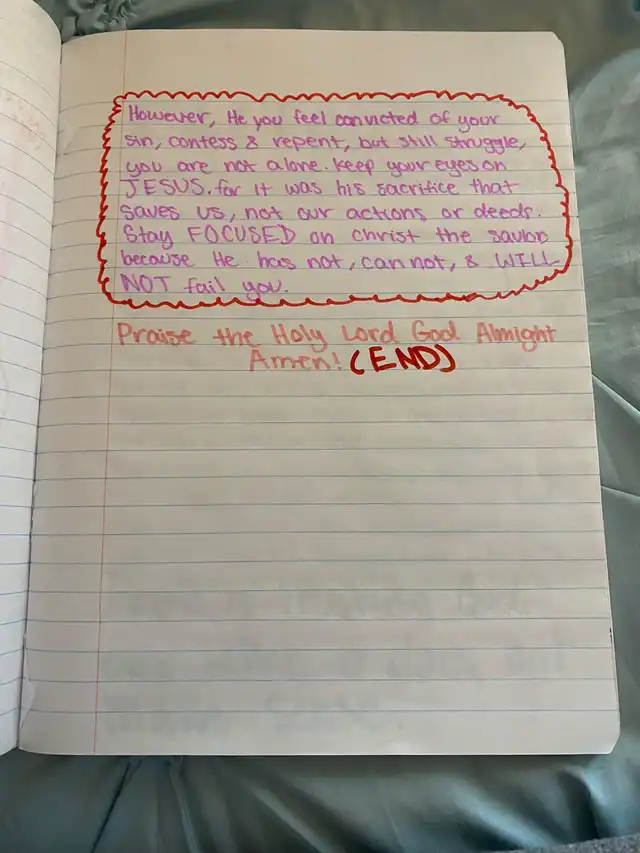 However, He you feel convicted of your
sin, confess & repent, but still struggle,
you are not alone. Keep your eyes on
JESUS, for it was his sacrifice that
saves us, not our actions or deeds.
Stay FOCUSED on christ the savior
because He has not, cannot, & WILL
NOT fail you.
Praise the Holy Lord God Almight
Amen! (END)